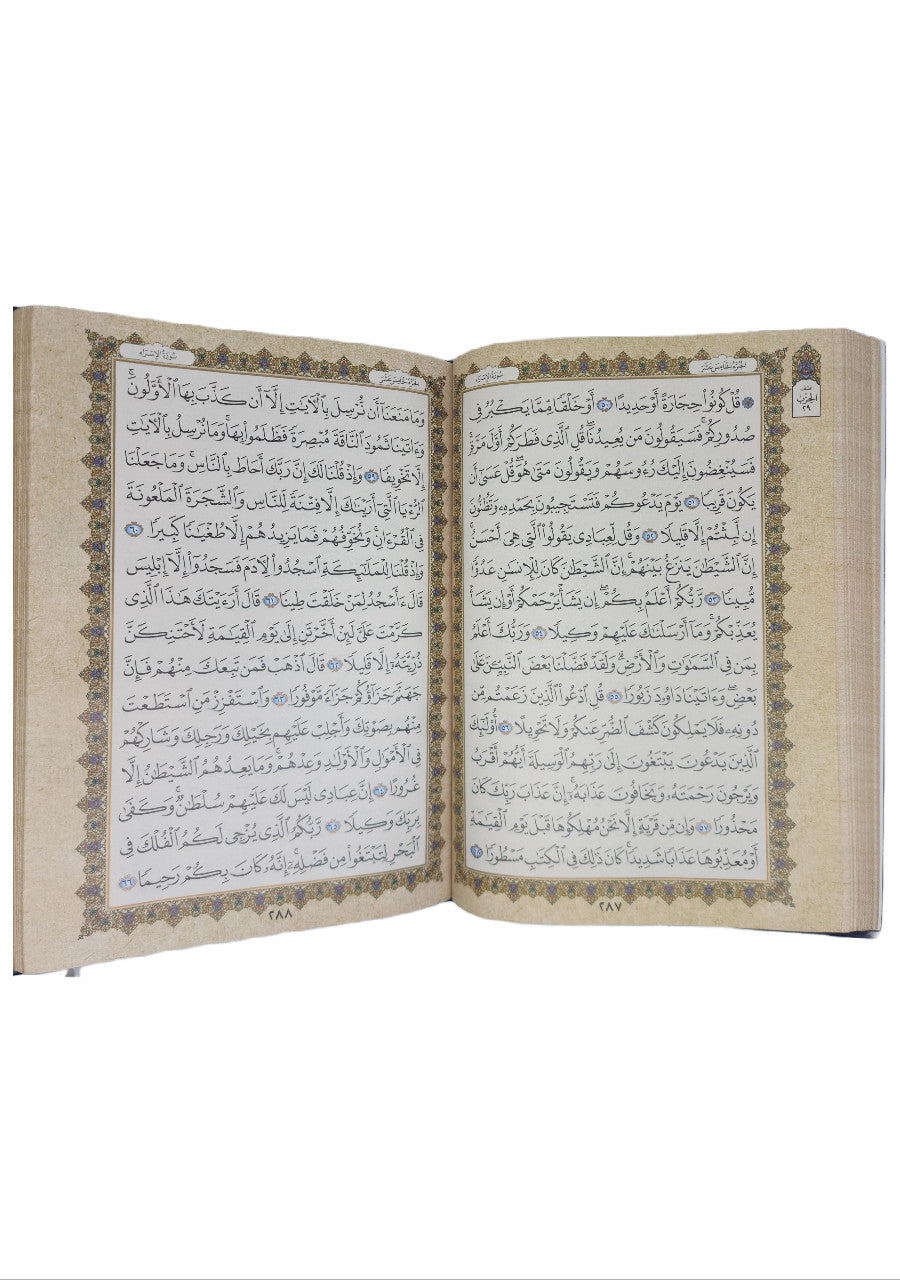 الجزء الخامس عشر
سورة الإسراء
نصف
الحزب
٢٩
۞ قُلْ كُونُوا۟ حِجَارَةً أَوْ حَدِيدًا ٥٠ أَوْ خَلْقًا مِّمَّا يَكْبُرُ فِى
صُدُورِكُمْ ۚ فَسَيَقُولُونَ مَن يُعِيدُنَا ۖ قُلِ ٱلَّذِى فَطَرَكُمْ أَوَّلَ مَرَّةٍ ۚ
فَسَيُنْغِضُونَ إِلَيْكَ رُءُوسَهُمْ وَيَقُولُونَ مَتَىٰ هُوَ ۖ قُلْ عَسَىٰٓ أَن
يَكُونَ قَرِيبًا ٥١ يَوْمَ يَدْعُوكُمْ فَتَسْتَجِيبُونَ بِحَمْدِهِۦ وَتَظُنُّونَ
إِن لَّبِثْتُمْ إِلَّا قَلِيلًا ٥٢ وَقُل لِّعِبَادِى يَقُولُوا۟ ٱلَّتِى هِىَ أَحْسَنُ ۚ
إِنَّ ٱلشَّيْطَٰنَ يَنزَغُ بَيْنَهُمْ ۚ إِنَّ ٱلشَّيْطَٰنَ كَانَ لِلْإِنسَٰنِ عَدُوًّا
مُّبِينًا ٥٣ رَّبُّكُمْ أَعْلَمُ بِكُمْ ۖ إِن يَشَأْ يَرْحَمْكُمْ أَوْ إِن يَشَأْ
يُعَذِّبْكُمْ ۚ وَمَآ أَرْسَلْنَٰكَ عَلَيْهِمْ وَكِيلًا ٥٤ وَرَبُّكَ أَعْلَمُ
بِمَن فِى ٱلسَّمَٰوَٰتِ وَٱلْأَرْضِ ۗ وَلَقَدْ فَضَّلْنَا بَعْضَ ٱلنَّبِيِّۦنَ عَلَىٰ
بَعْضٍ ۖ وَءَاتَيْنَا دَاوُۥدَ زَبُورًا ٥٥ قُلِ ٱدْعُوا۟ ٱلَّذِينَ زَعَمْتُم مِّن
دُونِهِۦ فَلَا يَمْلِكُونَ كَشْفَ ٱلضُّرِّ عَنكُمْ وَلَا تَحْوِيلًا ٥٦ أُو۟لَٰٓئِكَ
ٱلَّذِينَ يَدْعُونَ يَبْتَغُونَ إِلَىٰ رَبِّهِمُ ٱلْوَسِيلَةَ أَيُّهُمْ أَقْرَبُ
وَيَرْجُونَ رَحْمَتَهُۥ وَيَخَافُونَ عَذَابَهُۥٓ ۚ إِنَّ عَذَابَ رَبِّكَ كَانَ
مَحْذُورًا ٥٧ وَإِن مِّن قَرْيَةٍ إِلَّا نَحْنُ مُهْلِكُوهَا قَبْلَ يَوْمِ ٱلْقِيَٰمَةِ
أَوْ مُعَذِّبُوهَا عَذَابًا شَدِيدًا ۚ كَانَ ذَٰلِكَ فِى ٱلْكِتَٰبِ مَسْطُورًا ٥٨
٢٨٧
الجزء الخامس عشر
سورة الإسراء
وَمَا مَنَعَنَآ أَن نُّرْسِلَ بِٱلْءَايَٰتِ إِلَّآ أَن كَذَّبَ بِهَا ٱلْأَوَّلُونَ ۚ
وَءَاتَيْنَا ثَمُودَ ٱلنَّاقَةَ مُبْصِرَةً فَظَلَمُوا۟ بِهَا ۚ وَمَا نُرْسِلُ بِٱلْءَايَٰتِ
إِلَّا تَخْوِيفًا ٥٩ وَإِذْ قُلْنَا لَكَ إِنَّ رَبَّكَ أَحَاطَ بِٱلنَّاسِ ۚ وَمَا جَعَلْنَا
ٱلرُّءْيَا ٱلَّتِىٓ أَرَيْنَٰكَ إِلَّا فِتْنَةً لِّلنَّاسِ وَٱلشَّجَرَةَ ٱلْمَلْعُونَةَ
فِى ٱلْقُرْءَانِ ۚ وَنُخَوِّفُهُمْ فَمَا يَزِيدُهُمْ إِلَّا طُغْيَٰنًا كَبِيرًا ٦٠
وَإِذْ قُلْنَا لِلْمَلَٰٓئِكَةِ ٱسْجُدُوا۟ لِءَادَمَ فَسَجَدُوٓا۟ إِلَّآ إِبْلِيسَ
قَالَ ءَأَسْجُدُ لِمَنْ خَلَقْتَ طِينًا ٦١ قَالَ أَرَءَيْتَكَ هَٰذَا ٱلَّذِى
كَرَّمْتَ عَلَىَّ لَئِنْ أَخَّرْتَنِ إِلَىٰ يَوْمِ ٱلْقِيَٰمَةِ لَأَحْتَنِكَنَّ
ذُرِّيَّتَهُۥٓ إِلَّا قَلِيلًا ٦٢ قَالَ ٱذْهَبْ فَمَن تَبِعَكَ مِنْهُمْ فَإِنَّ
جَهَنَّمَ جَزَآؤُكُمْ جَزَآءً مَّوْفُورًا ٦٣ وَٱسْتَفْزِزْ مَنِ ٱسْتَطَعْتَ
مِنْهُم بِصَوْتِكَ وَأَجْلِبْ عَلَيْهِم بِخَيْلِكَ وَرَجِلِكَ وَشَارِكْهُمْ
فِى ٱلْأَمْوَٰلِ وَٱلْأَوْلَٰدِ وَعِدْهُمْ ۚ وَمَا يَعِدُهُمُ ٱلشَّيْطَٰنُ إِلَّا
غُرُورًا ٦٤ إِنَّ عِبَادِى لَيْسَ لَكَ عَلَيْهِمْ سُلْطَٰنٌ ۚ وَكَفَىٰ
بِرَبِّكَ وَكِيلًا ٦٥ رَّبُّكُمُ ٱلَّذِى يُزْجِى لَكُمُ ٱلْفُلْكَ فِى
ٱلْبَحْرِ لِتَبْتَغُوا۟ مِن فَضْلِهِۦٓ ۚ إِنَّهُۥ كَانَ بِكُمْ رَحِيمًا ٦٦
٢٨٨